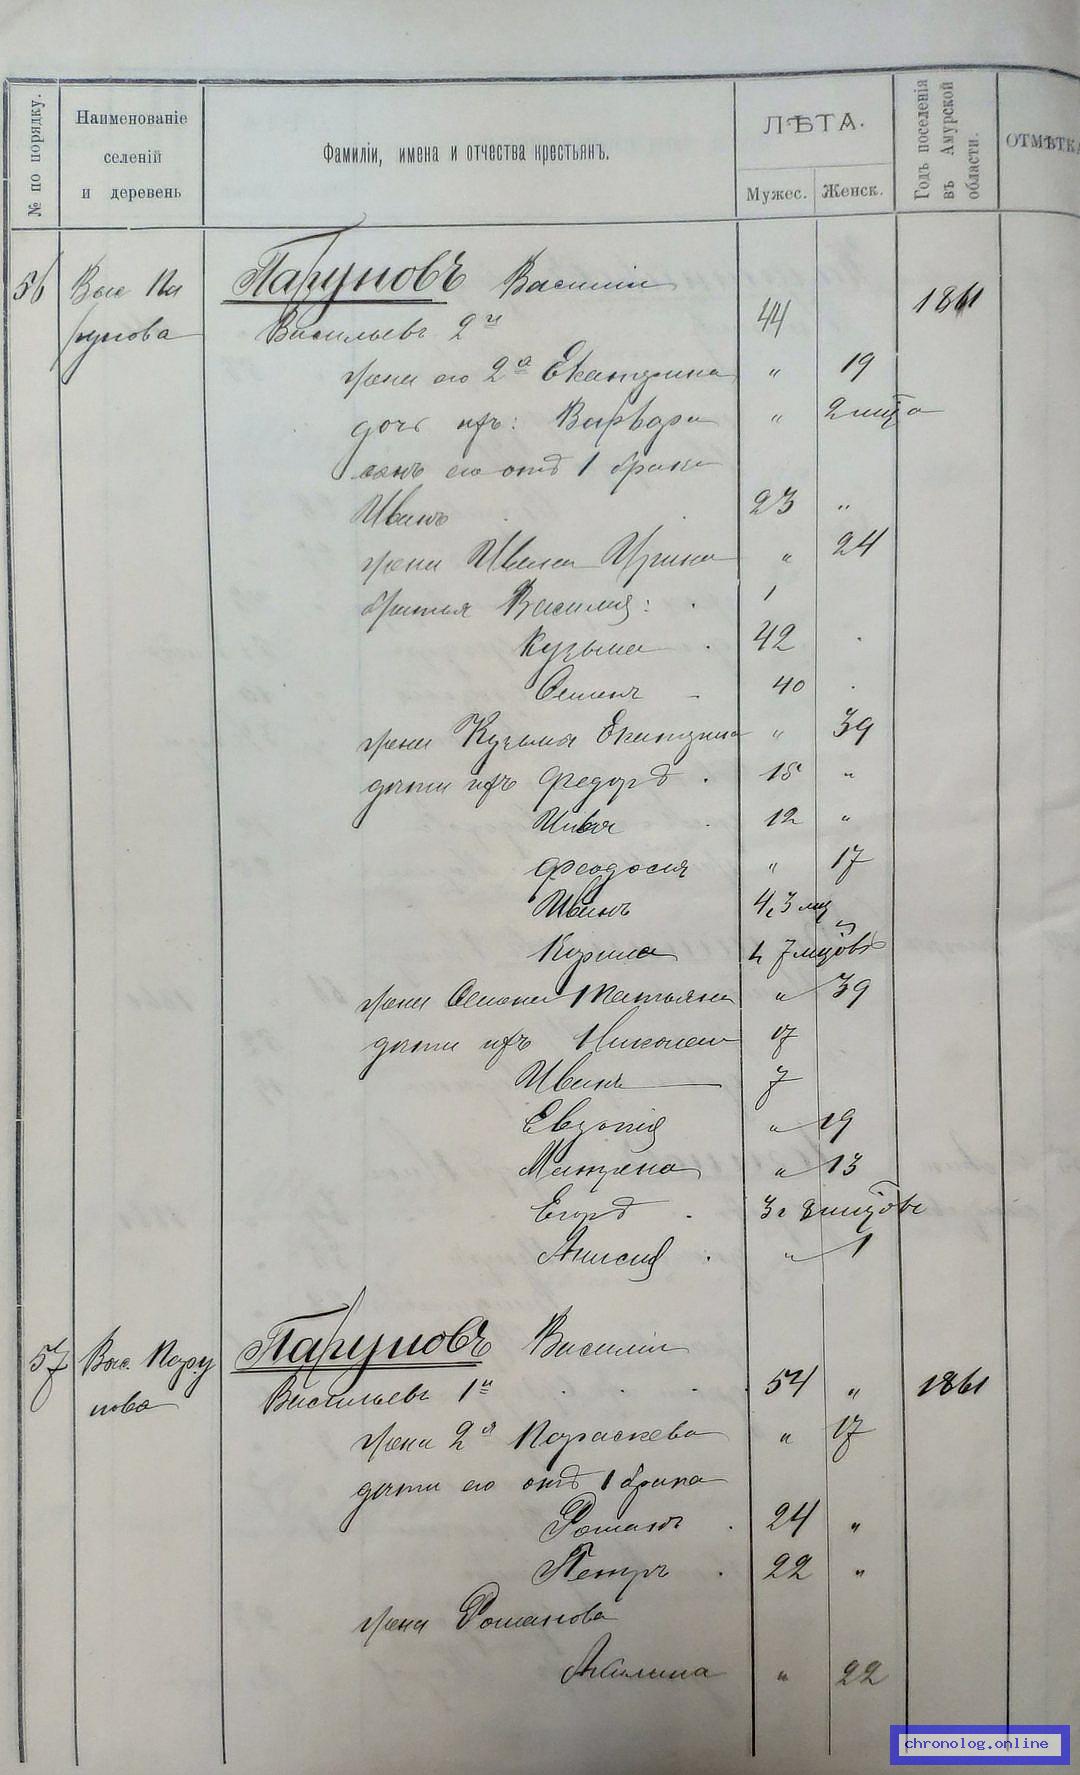 № по порядку.
Наименованіе
селеній
и деревень
Фамиліи, имена и отчества крестьянъ.
ЛѢТА.
Мужес.
Женск.
Годъ поселенія
въ Амурской
области.
ОТМѢТКА
56 Выс Па Паруновъ Василій 1861
рунова Васильевъ 2й 44
жена его 2я Екатерина " 19
дочь ихъ: Варвара " 2 мѣца
сынъ его отъ 1 брака
Иванъ 23 "
жена Ивана Ирина " 24
братья Василія: 1
Кузьма 42
Семенъ 40
жена Кузьмы Екатерина " 39
дѣти ихъ Федоръ 15 "
12 "
Феодосія " 17
Иванъ 4, 3 мц
7 мцовъ
жена Семена Татьяна " 39
дѣти ихъ Николай 17
Иванъ 7
Евдокія " 19
Матрена " 13
Егоръ 3 г мѣцовъ
Анисія " 1
57 Выс. Пару Паруновъ Василій
нова Васильевъ 1й 54 " 1861
жена 2я Параскева " 17
дѣти его отъ 1 брака
Романъ 24 "
Петръ 22 "
жена Романова
Акилина " 22
chronolog.online